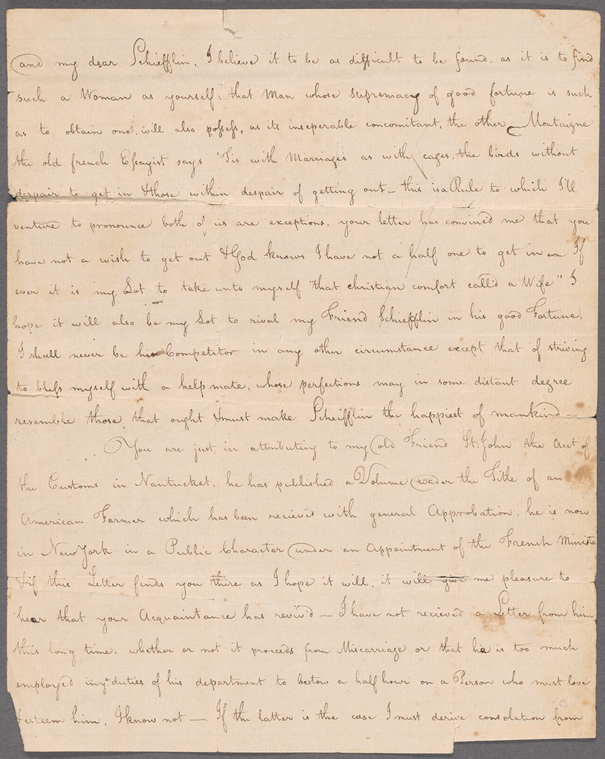 and my dear Schiefflin, I believe it to be as difficult to be found, as it is to find
such a Woman as yourself; that Man whose supremacy of good fortune is such
as to obtain one, will also possess, as its inseperable concomitant, the other – Montaigne
the old french Essayist says 'Tis with Marriages as with cages, the birds without
despair to get in & those within despair of getting out – this is a Rule to which I'll
venture to pronounce both of us are exceptions, your letter has convined me that you
have not a wish to get out & God knows I have not a half one to get in – If
ever it is my Lot to take unto myself "that christian comfort call'd a Wife" I
hope it will also be my Lot to rival my Friend Schiefflin in his good Fortune.
I shall never be his Competitor in any other circumstance except that of striving
to bless myself with a help mate, whose perfections may in some distant degree
resemble those, that ought & must make Scheifflin the happiest of mankind —
You are just in attributing to my old Friend St: John the acct of
the Customs in Nantucket, he has published a Volume under the Title of an
American Farmer which has been recieved with general Approbation, he is now
in New York in a Public Character under an Appointment of the French Minister
& if this Letter finds you there as I hope it will, it will give me pleasure to
hear that your Acquaintance has reviv'd — I have not recieved a Letter from him
this long time, whether or not it proceeds from Miscarriage or that he is too much
employed in ye duties of his department to bestow a half hour on a Person who must love
& esteem him, I know not — If the latter is the case I must derive consolation from